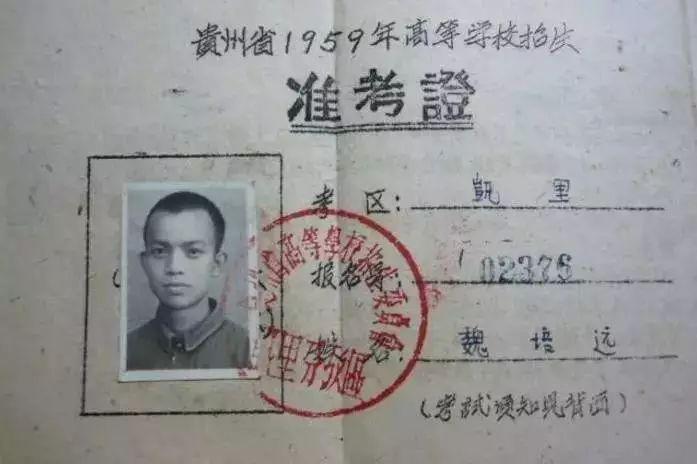 貴州省1959年高等学校招生
准考證
考区：凱里
报名号：02376
姓名：魏培远
(考試须知見背面)
高等學校招生委員會
里考區